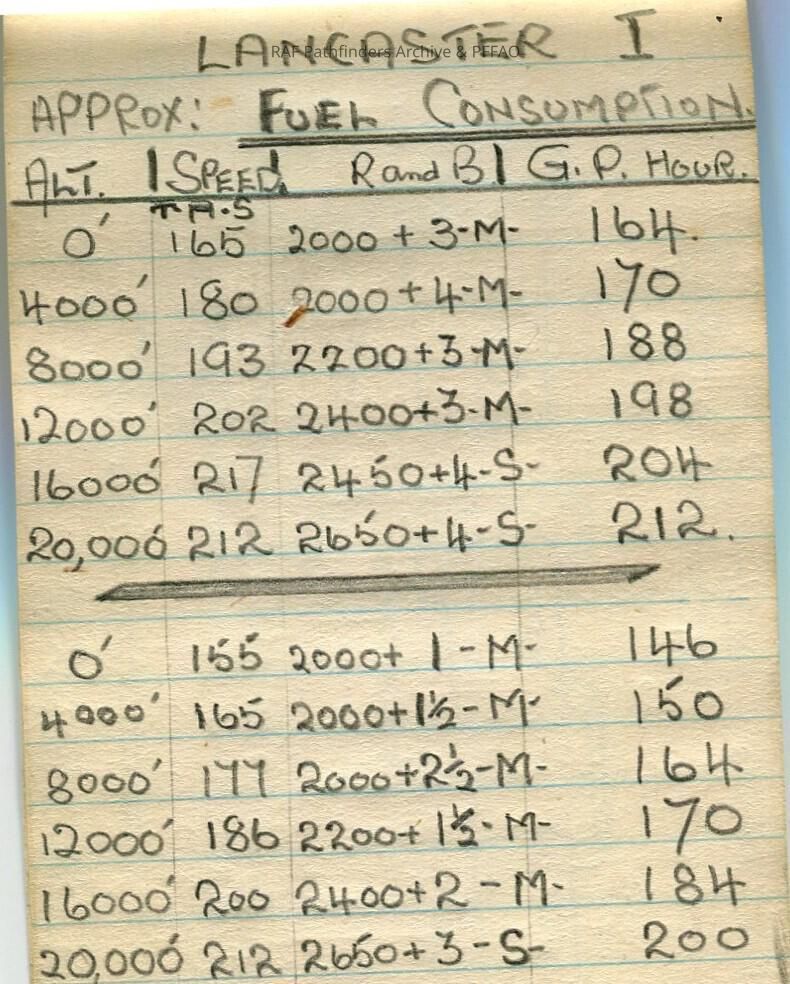 LANCASTER I
RAF Pathfinders Archive & PFFAO
APPROX: FUEL CONSUMPTION.
ALT. | SPEED. R and B | G. P. HOUR.
T.A.S
0' 165 2000 + 3-M- 164.
4000' 180 2000 + 4-M- 170
8000' 193 2200+3-M- 188
12000' 202 2400+3-M- 198
16000' 217 2450+4-S- 204
20,000' 212 2650+4-S- 212.
0' 155 2000+ 1-M- 146
4000' 165 2000+1½-M- 150
8000' 177 2000+2½-M- 164
12000' 186 2200+1½-M- 170
16000' 200 2400+2-M- 184
20,000' 212 2650+3-S- 200